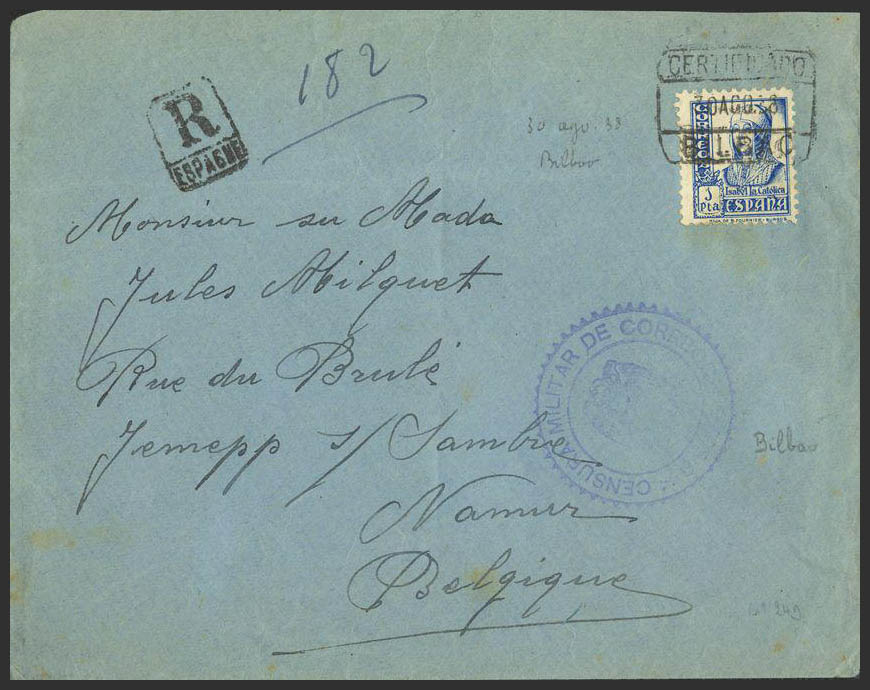 182
R
ESPAGNE
CERTIFICADO
30 AGO. 38
BILBAO
CORREOS
1 Pta
Isabel la Católica
ESPAÑA
30 ago. 38
Bilbao
Monsieur su Mada
Jules Milquet
Rue du Brulé
Jemepp s/ Sambre
Namur
Belgique
CENSURA MILITAR DE CORREOS
Bilbao